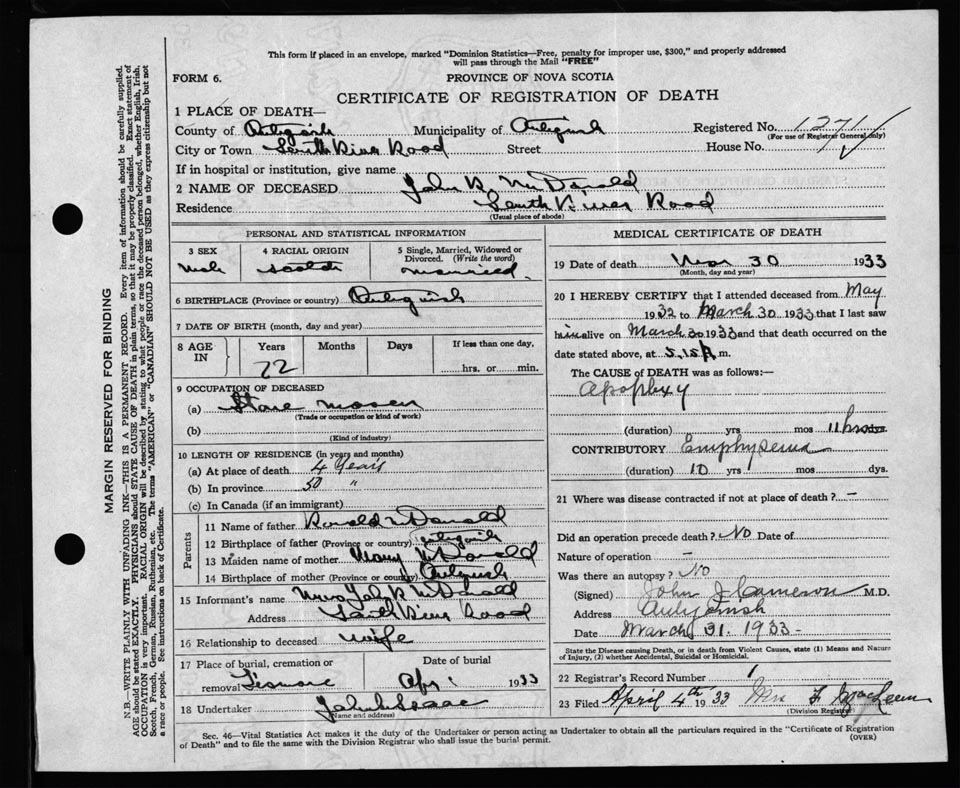 This form if placed in an envelope, marked "Dominion Statistics—Free, penalty for improper use, $300," and properly addressed
will pass through the Mail "FREE"
FORM 6.
PROVINCE OF NOVA SCOTIA
CERTIFICATE OF REGISTRATION OF DEATH
1 PLACE OF DEATH—
County of Antigonish Municipality of Antigonish Registered No. 1271
(For use of Registrar General only)
City or Town South River Road Street House No.
If in hospital or institution, give name
2 NAME OF DECEASED John B. McDonald
Residence South River Road
(Usual place of abode)
MARGIN RESERVED FOR BINDING
N.B.—WRITE PLAINLY WITH UNFADING INK—THIS IS A PERMANENT RECORD. Every item of information should be carefully supplied.
AGE should be stated EXACTLY. PHYSICIANS should STATE CAUSE OF DEATH in plain terms, so that it may be properly classified. Exact statement of
OCCUPATION is very important. RACIAL ORIGIN will be described by stating to what people or race the deceased person belonged, whether English, Irish,
Scotch, French, German, Russian, Ruthenian, etc. The terms "AMERICAN" or "CANADIAN" SHOULD NOT BE USED as they express citizenship but not
a race or people. See instructions on back of Certificate.
PERSONAL AND STATISTICAL INFORMATION
3 SEX
male
4 RACIAL ORIGIN
5 Single, Married, Widowed or
Divorced. (Write the word)
married
6 BIRTHPLACE (Province or country) Antigonish
7 DATE OF BIRTH (month, day and year)
8 AGE
IN
Years
72
Months
Days
If less than one day,
hrs. or min.
9 OCCUPATION OF DECEASED
(a) Stone mason
(Trade or occupation or kind of work)
(b)
(Kind of industry)
10 LENGTH OF RESIDENCE (in years and months)
(a) At place of death 4 Years
(b) In province 50 "
(c) In Canada (if an immigrant)
Parents
11 Name of father Ronald McDonald
12 Birthplace of father (Province or country) Antigonish
13 Maiden name of mother Mary McDonald
14 Birthplace of mother (Province or country) Antigonish
15 Informant's name Mrs John B. McDonald
Address South River Road
16 Relationship to deceased wife
17 Place of burial, cremation or
removal Lismore
Date of burial
Apr 1 1933
18 Undertaker
(Name and address)
MEDICAL CERTIFICATE OF DEATH
19 Date of death Mar 30 1933
(Month, day and year)
20 I HEREBY CERTIFY that I attended deceased from May
1932 to March 30 1933 that I last saw
him alive on March 30 1933 and that death occurred on
the date stated above, at 5.15 A m.
The CAUSE of DEATH was as follows:—
Apoplexy
(duration) yrs mos 11 hrs
CONTRIBUTORY Emphysema
(duration) 10 yrs mos dys.
21 Where was disease contracted if not at place of death? —
Did an operation precede death? No Date of
Nature of operation —
Was there an autopsy? No
(Signed) John J Cameron M.D.
Address Antigonish
Date March 31. 1933 -
State the Disease causing Death, or in death from Violent Causes, state (1) Means and Nature
of Injury, (2) whether Accidental, Suicidal or Homicidal.
22 Registrar's Record Number 1
23 Filed April 4th 1933 Mrs F
(Division Registrar)
Sec. 46—Vital Statistics Act makes it the duty of the Undertaker or person acting as Undertaker to obtain all the particulars required in the "Certificate of Registration
of Death" and to file the same with the Division Registrar who shall issue the burial permit.
(OVER)